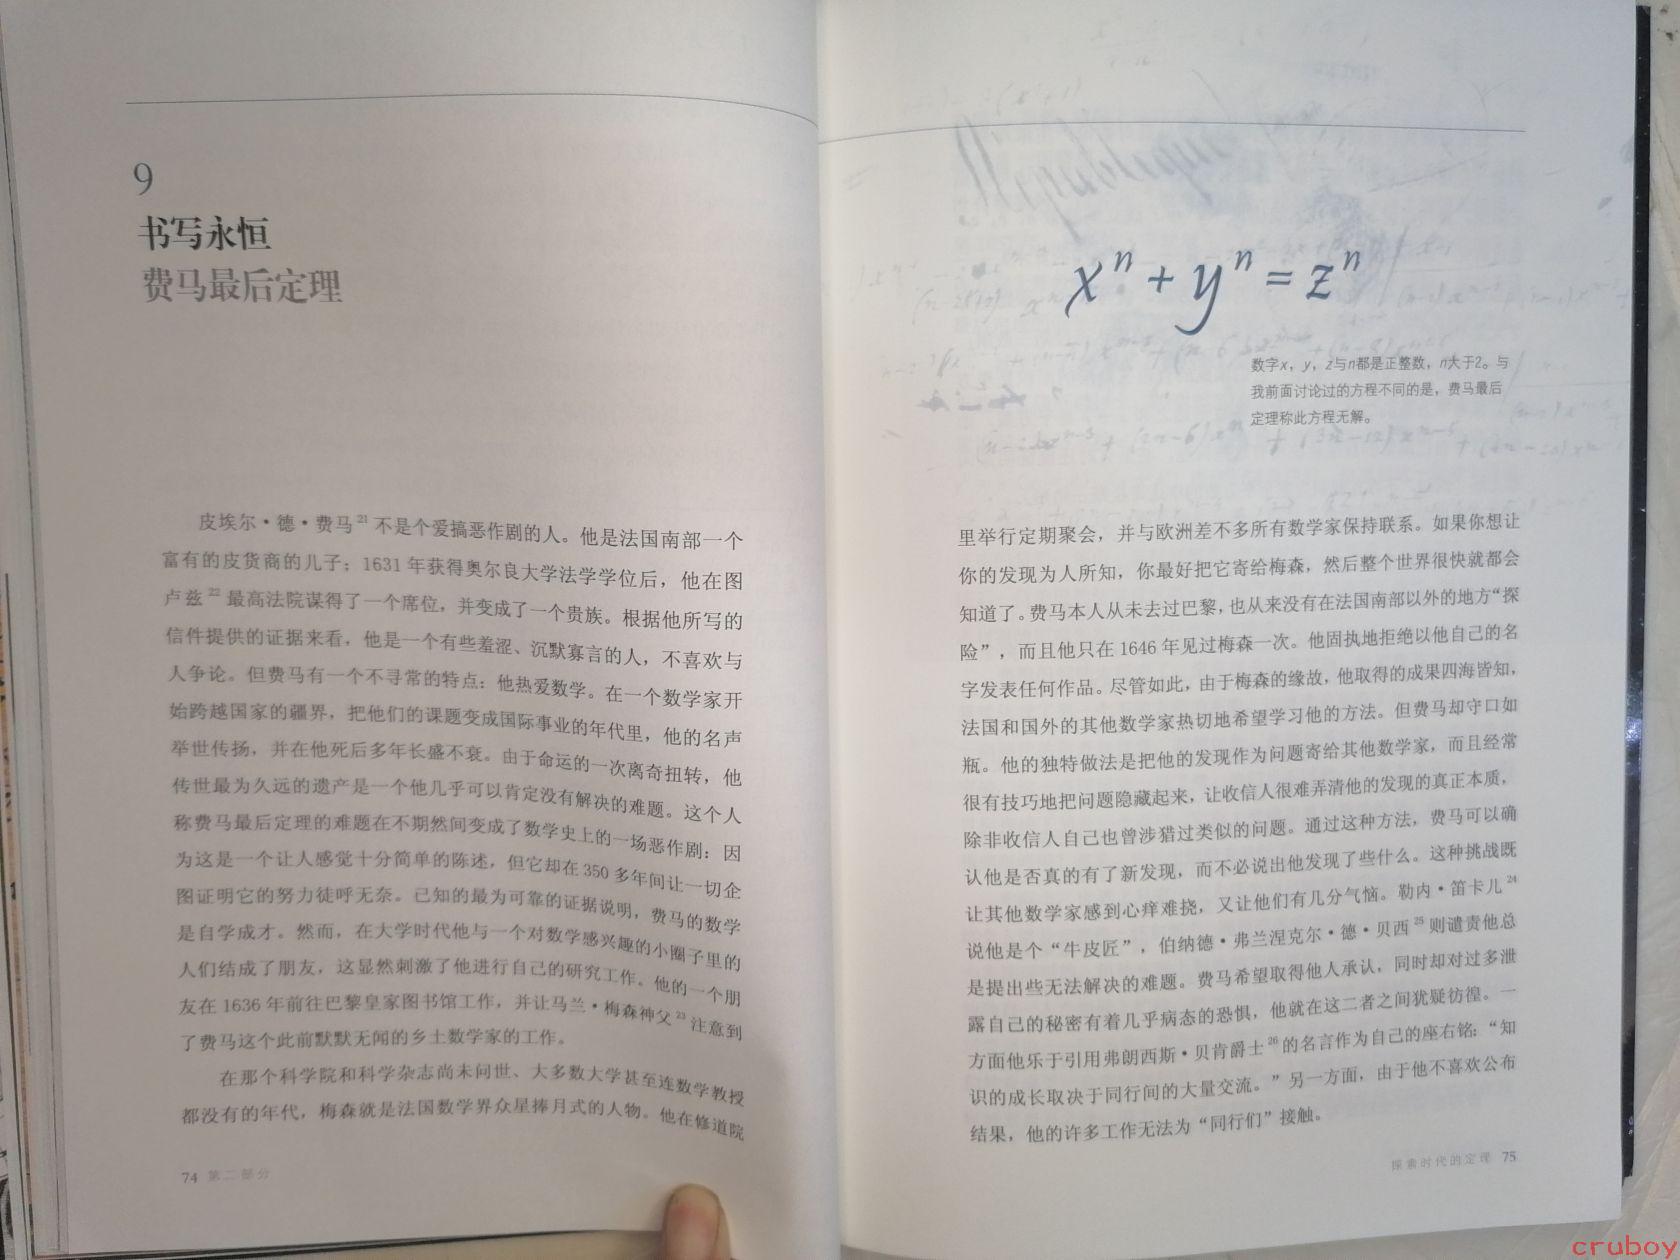 9
书写永恒
费马最后定理
皮埃尔·德·费马21不是个爱搞恶作剧的人。他是法国南部一个
富有的皮货商的儿子；1631年获得奥尔良大学法学学位后，他在图
卢兹22最高法院谋得了一个席位，并变成了一个贵族。根据他所写的
信件提供的证据来看，他是一个有些羞涩、沉默寡言的人，不喜欢与
人争论。但费马有一个不寻常的特点：他热爱数学。在一个数学家开
始跨越国家的疆界，把他们的课题变成国际事业的年代里，他的名声
举世传扬，并在他死后多年长盛不衰。由于命运的一次离奇扭转，他
传世最为久远的遗产是一个他几乎可以肯定没有解决的难题。这个人
称费马最后定理的难题在不期然间变成了数学史上的一场恶作剧：因
为这是一个让人感觉十分简单的陈述，但它却在350多年间让一切企
图证明它的努力徒呼无奈。已知的最为可靠的证据说明，费马的数学
是自学成才。然而，在大学时代他与一个对数学感兴趣的小圈子里的
人们结成了朋友，这显然刺激了他进行自己的研究工作。他的一个朋
友在1636年前往巴黎皇家图书馆工作，并让马兰·梅森神父23注意到
了费马这个此前默默无闻的乡土数学家的工作。
在那个科学院和科学杂志尚未问世、大多数大学甚至连数学教授
都没有的年代，梅森就是法国数学界众星捧月式的人物。他在修道院
74 第二部分
xⁿ + yⁿ = zⁿ
数字x，y，z与n都是正整数，n大于2。与
我前面讨论过的方程不同的是，费马最后
定理称此方程无解。
里举行定期聚会，并与欧洲差不多所有数学家保持联系。如果你想让
你的发现为人所知，你最好把它寄给梅森，然后整个世界很快就都会
知道了。费马本人从未去过巴黎，也从来没有在法国南部以外的地方“探
险”，而且他只在1646年见过梅森一次。他固执地拒绝以他自己的名
字发表任何作品。尽管如此，由于梅森的缘故，他取得的成果四海皆知，
法国和国外的其他数学家热切地希望学习他的方法。但费马却守口如
瓶。他的独特做法是把他的发现作为问题寄给其他数学家，而且经常
很有技巧地把问题隐藏起来，让收信人很难弄清他的发现的真正本质，
除非收信人自己也曾涉猎过类似的问题。通过这种方法，费马可以确
认他是否真的有了新发现，而不必说出他发现了些什么。这种挑战既
让其他数学家感到心痒难挠，又让他们有几分气恼。勒内·笛卡儿24
说他是个“牛皮匠”，伯纳德·弗兰涅克尔·德·贝西25则谴责他总
是提出些无法解决的难题。费马希望取得他人承认，同时却对过多泄
露自己的秘密有着几乎病态的恐惧，他就在这二者之间犹疑彷徨。一
方面他乐于引用弗朗西斯·贝肯爵士26的名言作为自己的座右铭：“知
识的成长取决于同行间的大量交流。”另一方面，由于他不喜欢公布
结果，他的许多工作无法为“同行们”接触。
探索时代的定理 75
cruboy